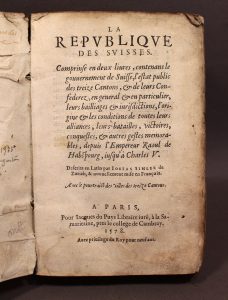 LA
REPVBLIQVE
DES SVISSES.
Comprinse en deux liures, contenans le
gouuernement de Suisse, l'estat public
des treize Cantons, & de leurs Con-
federez, en general & en particulier,
leurs bailliages & iurisdictions, l'ori-
gine & les conditions de toutes leurs
alliances, leurs batailles, victoires,
conquestes, & autres gestes memora-
bles, depuis l'Empereur Raoul de
Habspourg, iusqu'à Charles V.
Descrite en Latin par IOSIAS SIMLER de
Zurich, & nouuellement mise en François.
Auec le pourtraict des villes des treize Cantons.
A PARIS,
Pour Iaques du Puys Libraire iuré, à la Sa-
maritaine, pres le college de Cambray.
1578.
Auec priuilege du Roy pour neuf ans.